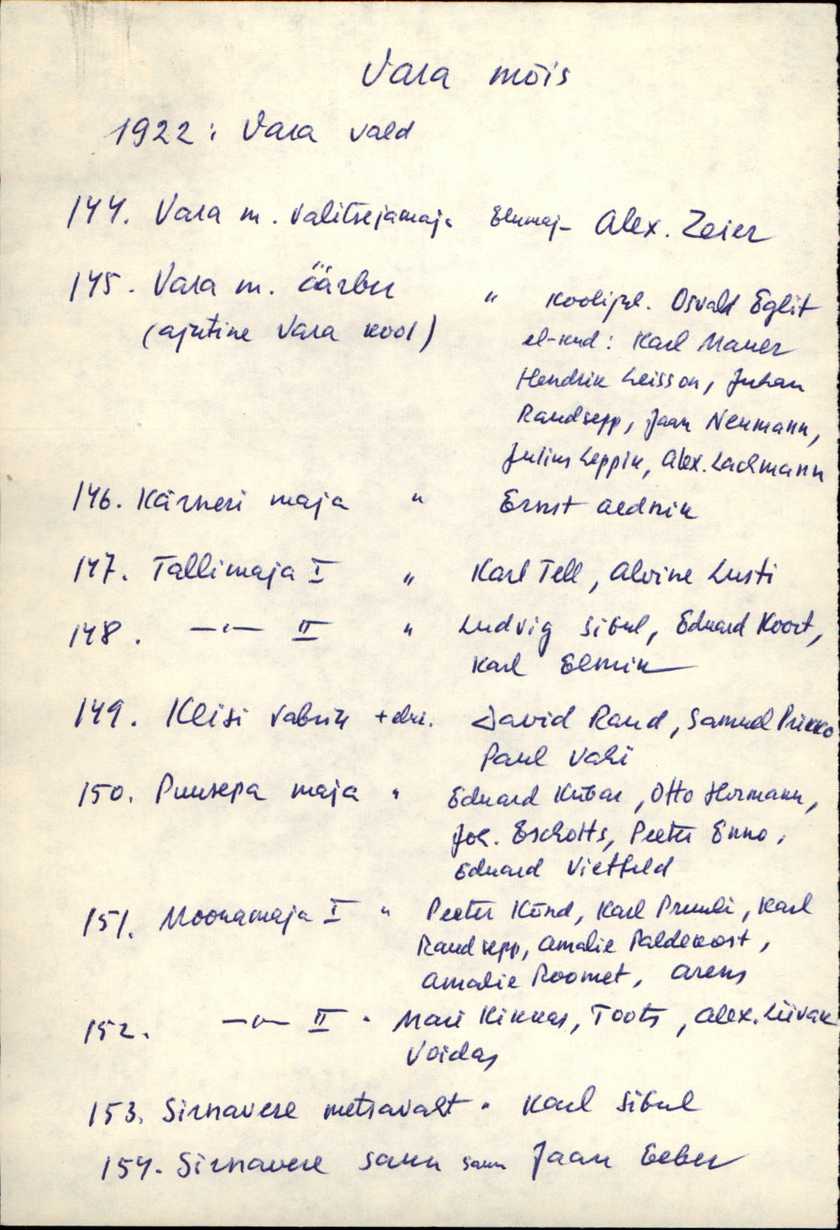 Vara mõis
1922: Vara vald
144. Vara m. valitsejamaja Elumaj- Alex. Zeier
145. Vara m. äärber " koolijuh. Osvald Eglit
(ajutine Vara kool) el-kud: Karl Mauer
Hendrik Leisson, Juhan
Raudsepp, Jaan Neumann,
Julius Leppik, Alex. Lachmann
146. Kärneri maja " Ernst aednik
147. Tallimaja I " Karl Tell, Alvine Lusti
148. —"— II " Ludvig Sibul, Eduard Koort,
Karl Elmik
149. Kliisi vabrik + elu. David Raud, Samuel Prikko
Paul Vahi
150. Puusepa maja " Eduard Kubar, Otto Hermann,
Joh. Escholts, Peeter Enno,
Eduard Vietfeld
151. Moonamaja I " Peeter Künd, Karl Pruuli, Karl
Raudsepp, Amalie Paldekost,
Amalie Roomet, Arens
152. —"— II " Mari Kikkas, Toots, Alex. Liivak
Voidas
153. Sirnavere metsavaht " Karl Sibul
154. Sirnavere saun saun Jaan Eeber